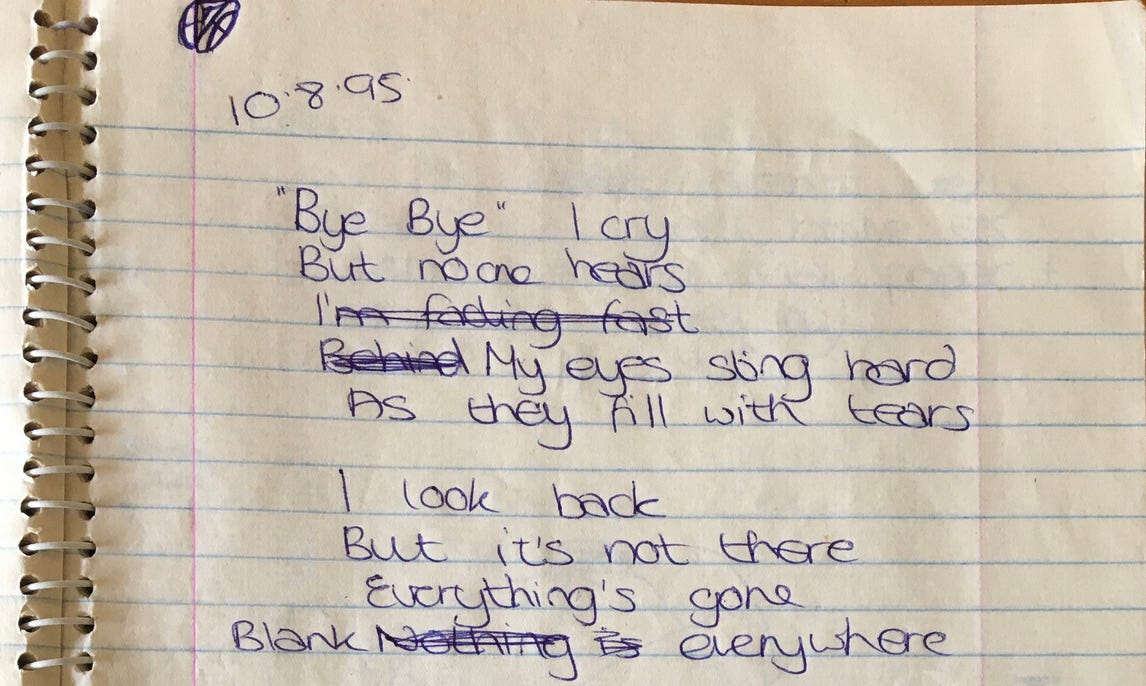 10.8.95.
"Bye Bye" I cry
But noone hears
I'm fading fast
Behind My eyes sting hard
As they fill with tears
I look back
But it's not there
Everything's gone
Blank Nothing is everywhere